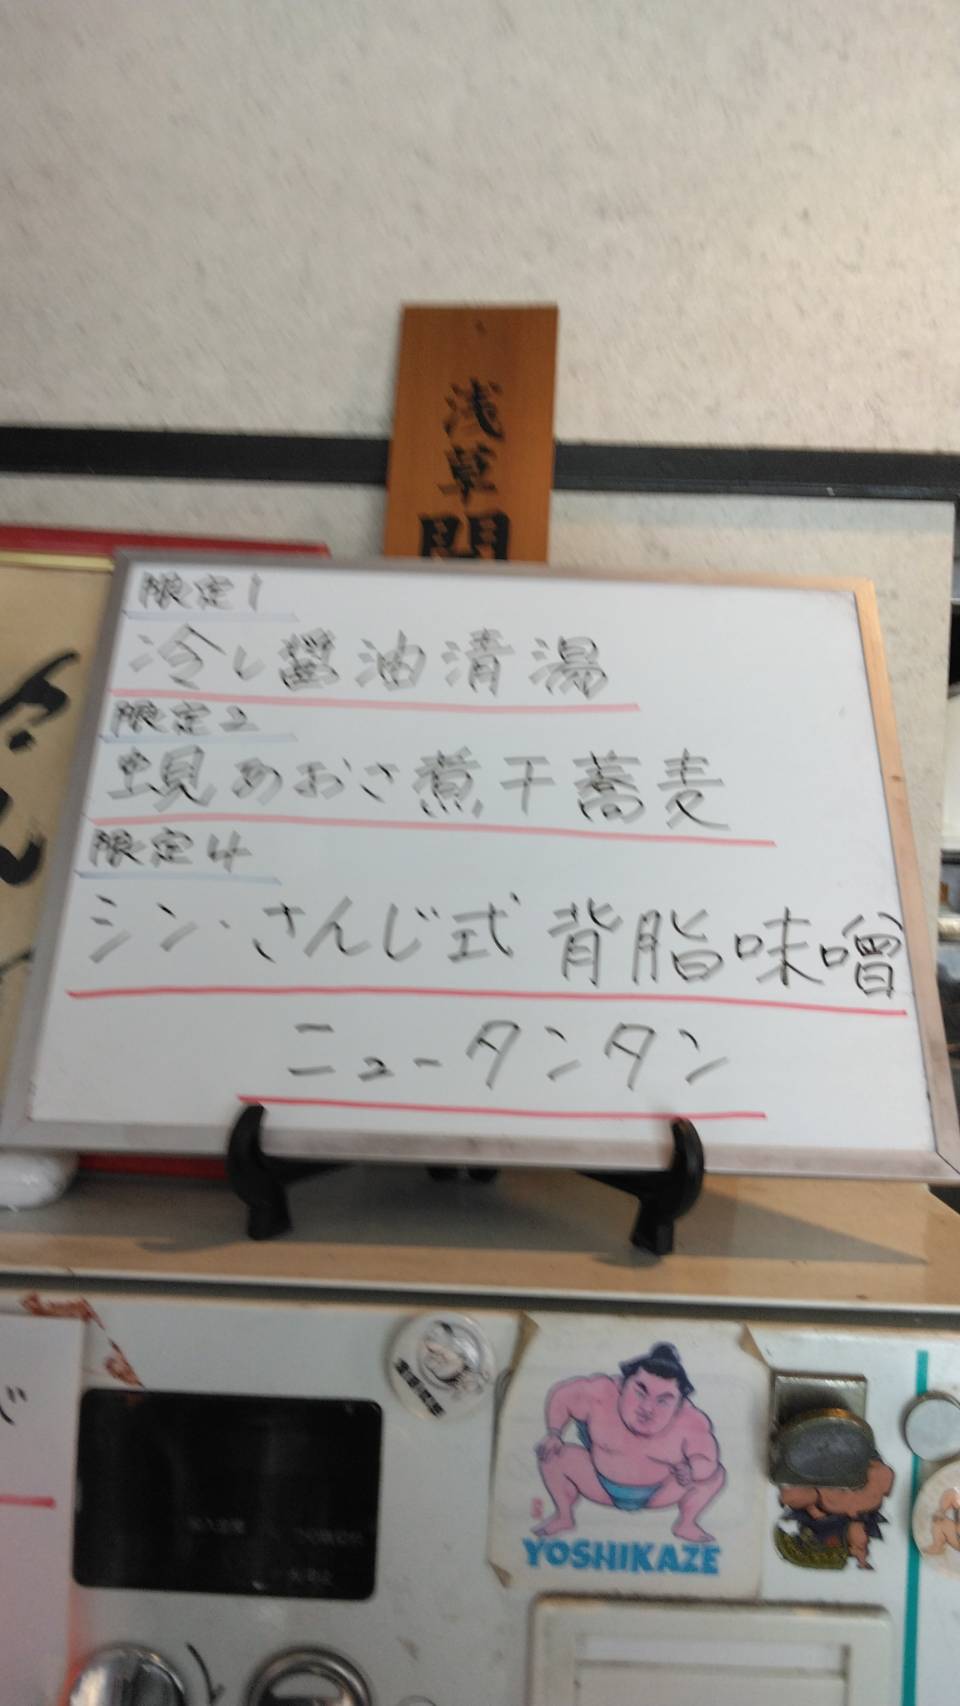 浅草
限定1
冷し醤油清湯
限定2
蜆あおさ煮干蕎麦
限定4
シン・さんじ式 背脂味噌
ニュータンタン
YOSHIKAZE